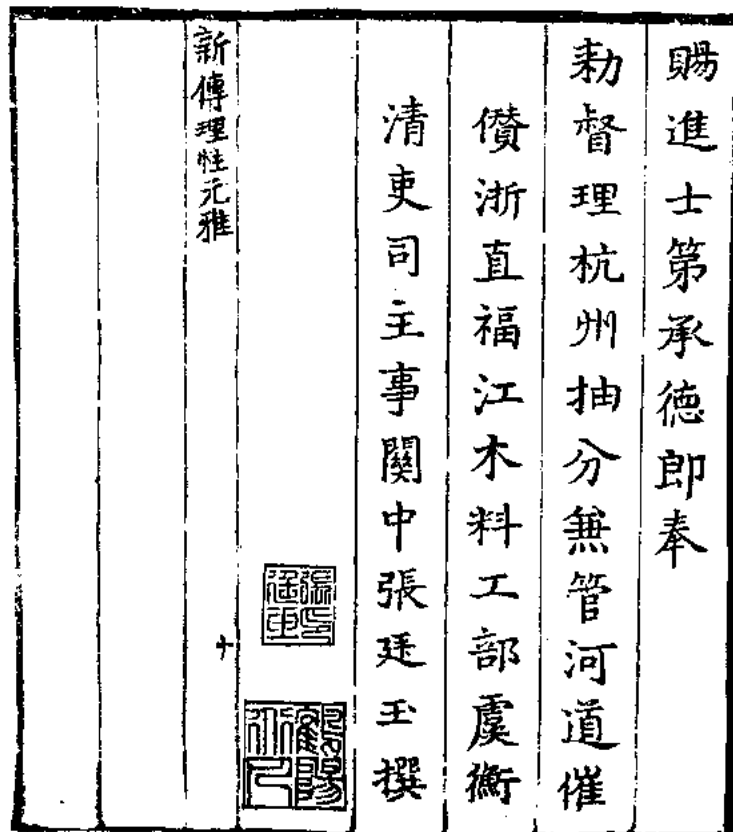 賜進士第承德郎奉
勅督理杭州抽分兼管河道催
儧浙直福江木料工部虞衡
清吏司主事關中張廷玉撰
張印廷玉
新傳理性元雅
十